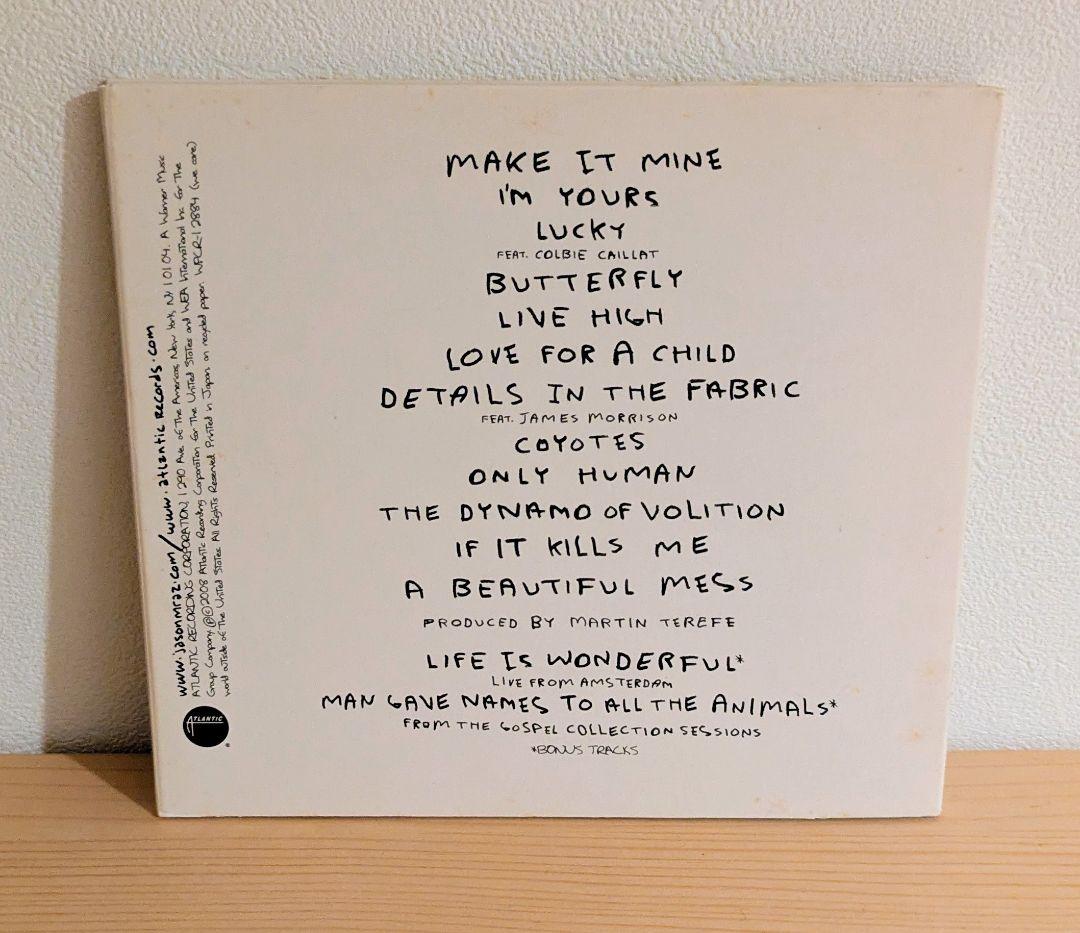 MAKE IT MINE
I'M YOURS
LUCKY
FEAT. COLBIE CAILLAT
BUTTERFLY
LIVE HIGH
LOVE FOR A CHILD
DETAILS IN THE FABRIC
FEAT. JAMES MORRISON
COYOTES
ONLY HUMAN
THE DYNAMO OF VOLITION
IF IT KILLS ME
A BEAUTIFUL MESS
PRODUCED BY MARTIN TEREFE
LIFE IS WONDERFUL*
LIVE FROM AMSTERDAM
MAN GAVE NAMES TO ALL THE ANIMALS*
FROM THE GOSPEL COLLECTION SESSIONS
*BONUS TRACKS
www.jasonmraz.com/www.atlantic records.com
ATLANTIC RECORDING CORPORATION, 1290 Ave. of The Americas, New York, NY 10104. A Warner Music
Group Company. ℗©2008 Atlantic Recording Corporation for The United States and WEA International Inc. for The
world outside of The United States. All Rights Reserved. Printed in Japan on recycled paper. WPCR-12884 (we care)
ATLANTIC
®